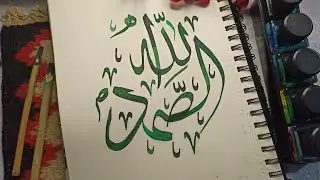 الله
الصمد